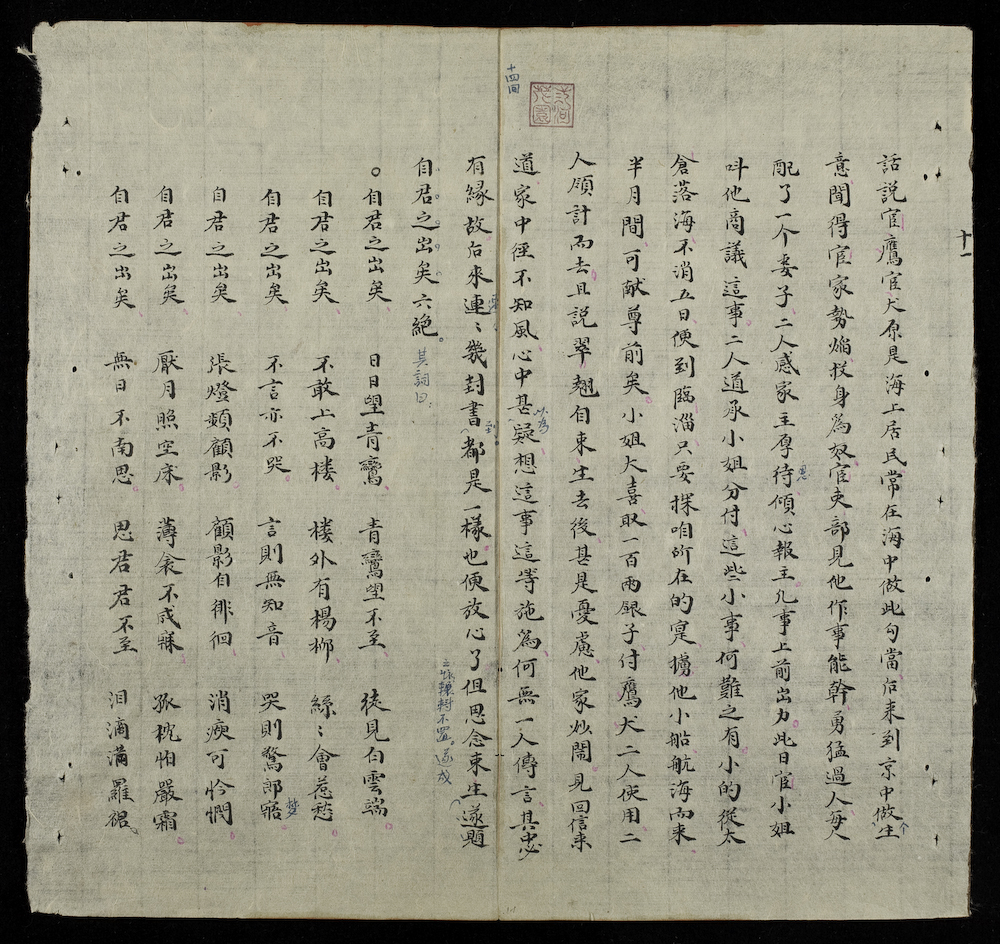 十一
話説宦鷹宦犬原是海上居民常在海中做此勾當后来到京中做生个
意聞得宦家勢焔投身為奴宦吏部見他作事能幹勇猛過人每人
配了一个妻子二人感家主厚待恩傾心報主凡事上前出力此日宦小姐
呌他商議這事二人道承小姐分付這些小事何難之有小的從太
倉落海不消五日便到臨淄只要探咱所在的寔擄他小船航海而来
半月間可献尊前矣小姐大喜取一百両銀子付鷹犬二人使用二
人領計而去且説翠翹自束生去後甚是憂慮他家炒鬧見回信来
十四回
道家中徑不知風心中甚以為疑想這事這等施為何無一人傳言其中必
有縁故后来連〻幾封書到都是一様也便放心了但思念束生遂題
之懷轉轉不置。遂成
自君之出矣六絶。其詞曰:
○自君之出矣 日日望青鸞 青鸞望不至 徒見白雲端
自君之出矣 不敢上高楼 楼外有楊柳 絲〻會惹愁
自君之出矣 不言亦不哭 言則無知音 哭則驚郎寤夢
自君之出矣 張燈頻顧影 顧影自徘徊 消瘐可怜憫
自君之出矣 厭月照空床 薄衾不成寐 孤枕怕嚴霜
自君之出矣 無日不南思 思君君不至 泪滴滿羅裾